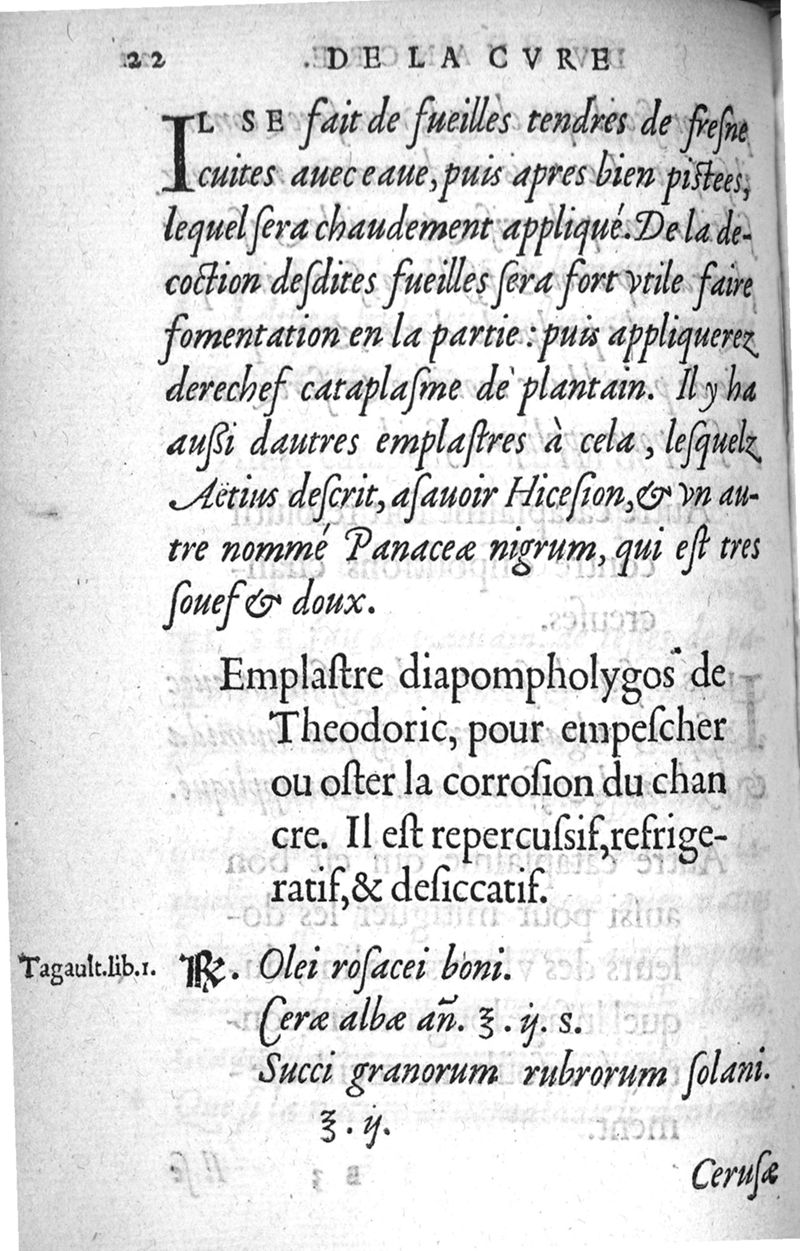 22 DE LA CVRE
IL SE fait de fueilles tendres de freſne
cuites auec eaue, puis apres bien piſtees,
lequel ſera chaudement appliqué. De la de-
coction deſdites fueilles ſera fort vtile faire
fomentation en la partie : puis appliquerez
derechef cataplaſme de plantain. Il y ha
auſſi dautres emplaſtres à cela, leſquelz
Aëtius deſcrit, aſauoir Hiceſion, & vn au-
tre nommé Panaceæ nigrum, qui eſt tres
ſouef & doux.
Emplaſtre diapompholygos de
Theodoric, pour empeſcher
ou oſter la corroſion du chan
cre. Il eſt repercuſſif, refrige-
ratif, & deſiccatif.
Tagault. lib. 1. ℞. Olei roſacei boni.
Ceræ albæ añ. ℥. ij. s.
Succi granorum rubrorum ſolani.
℥. ij.
Ceruſæ